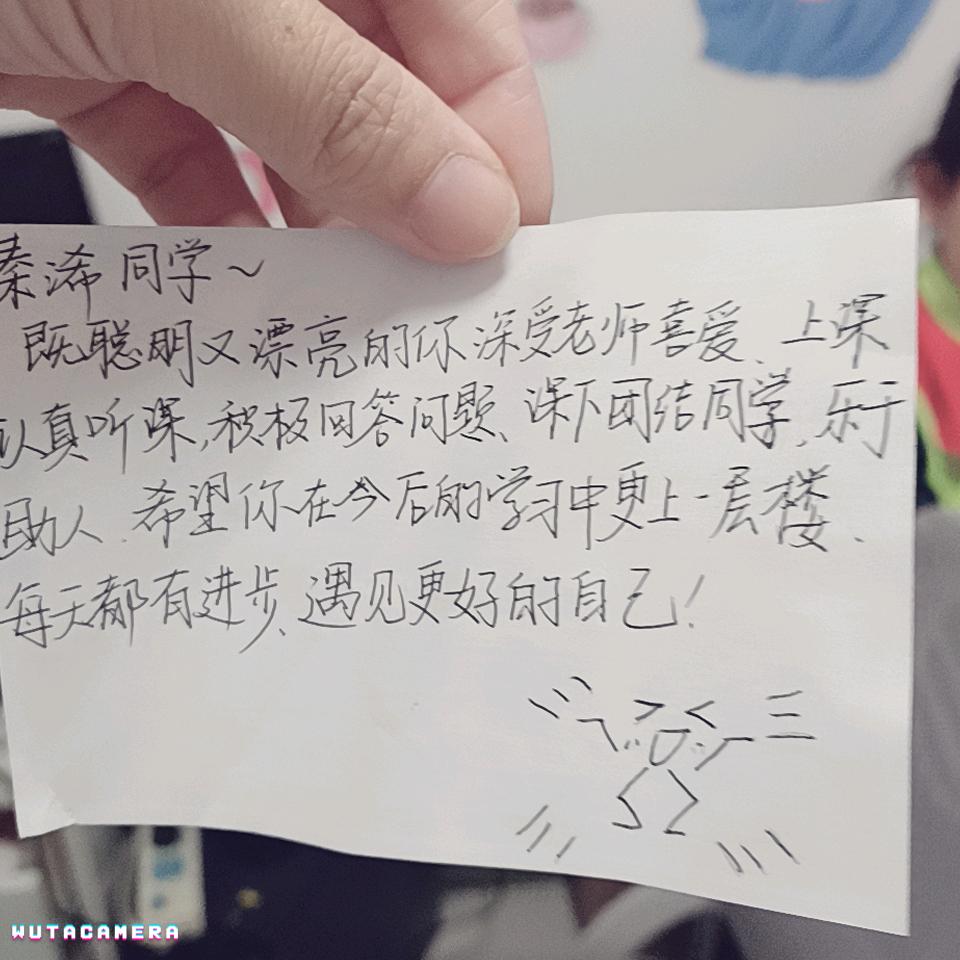 秦浠同学~
既聪明又漂亮的你深受老师喜爱、上课
认真听课,积极回答问题、课下团结同学,乐于
助人.希望你在今后的学习中更上一层楼、
每天都有进步、遇见更好的自己!
WUTACAMERA